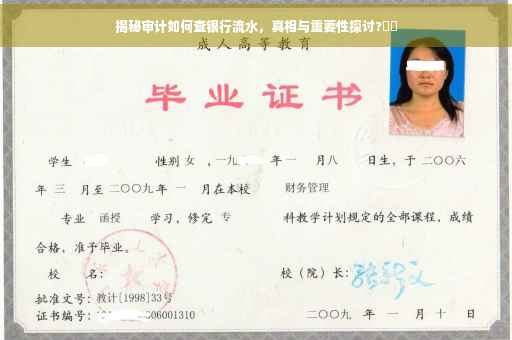 揭秘审计如何查银行流水，真相与重要性探讨?
成人高等教育
毕业证书
学生 性别 女 ，一九 年 一 月八 日生，于 二〇〇六
年 三 月至 二〇〇九 年 一 月在本校 财务管理
专业 函授 学习，修完 专 科教学计划规定的全部课程，成绩
合格，准予毕业。
校 名： 校（院）长：
批准文号：教计[1998]33号
证书编号： 06001310 二〇〇九 年 一 月 十 日